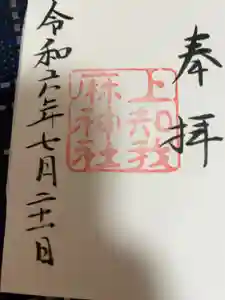 奉拝
上知我麻神社
令和六年七月二十一日